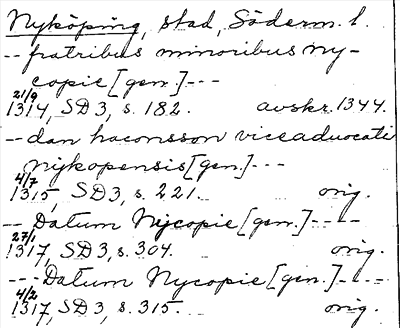 Nyköping, stad, Söderm. l.
-- fratribus minoribus ny-
copie [gen.] ---
21/9
1314, SD 3, s. 182. avskr. 1344.
-- dan haconsson viceaduocati
nykopensis [gen.] ---
4/7
1315, SD 3, s. 221. orig.
-- Datum Nycopie [gen.] ----
27/1
1317, SD 3, s. 304. orig.
--- Datum Nycopie [gen.] ----
4/2
1317, SD 3, s. 315. orig.